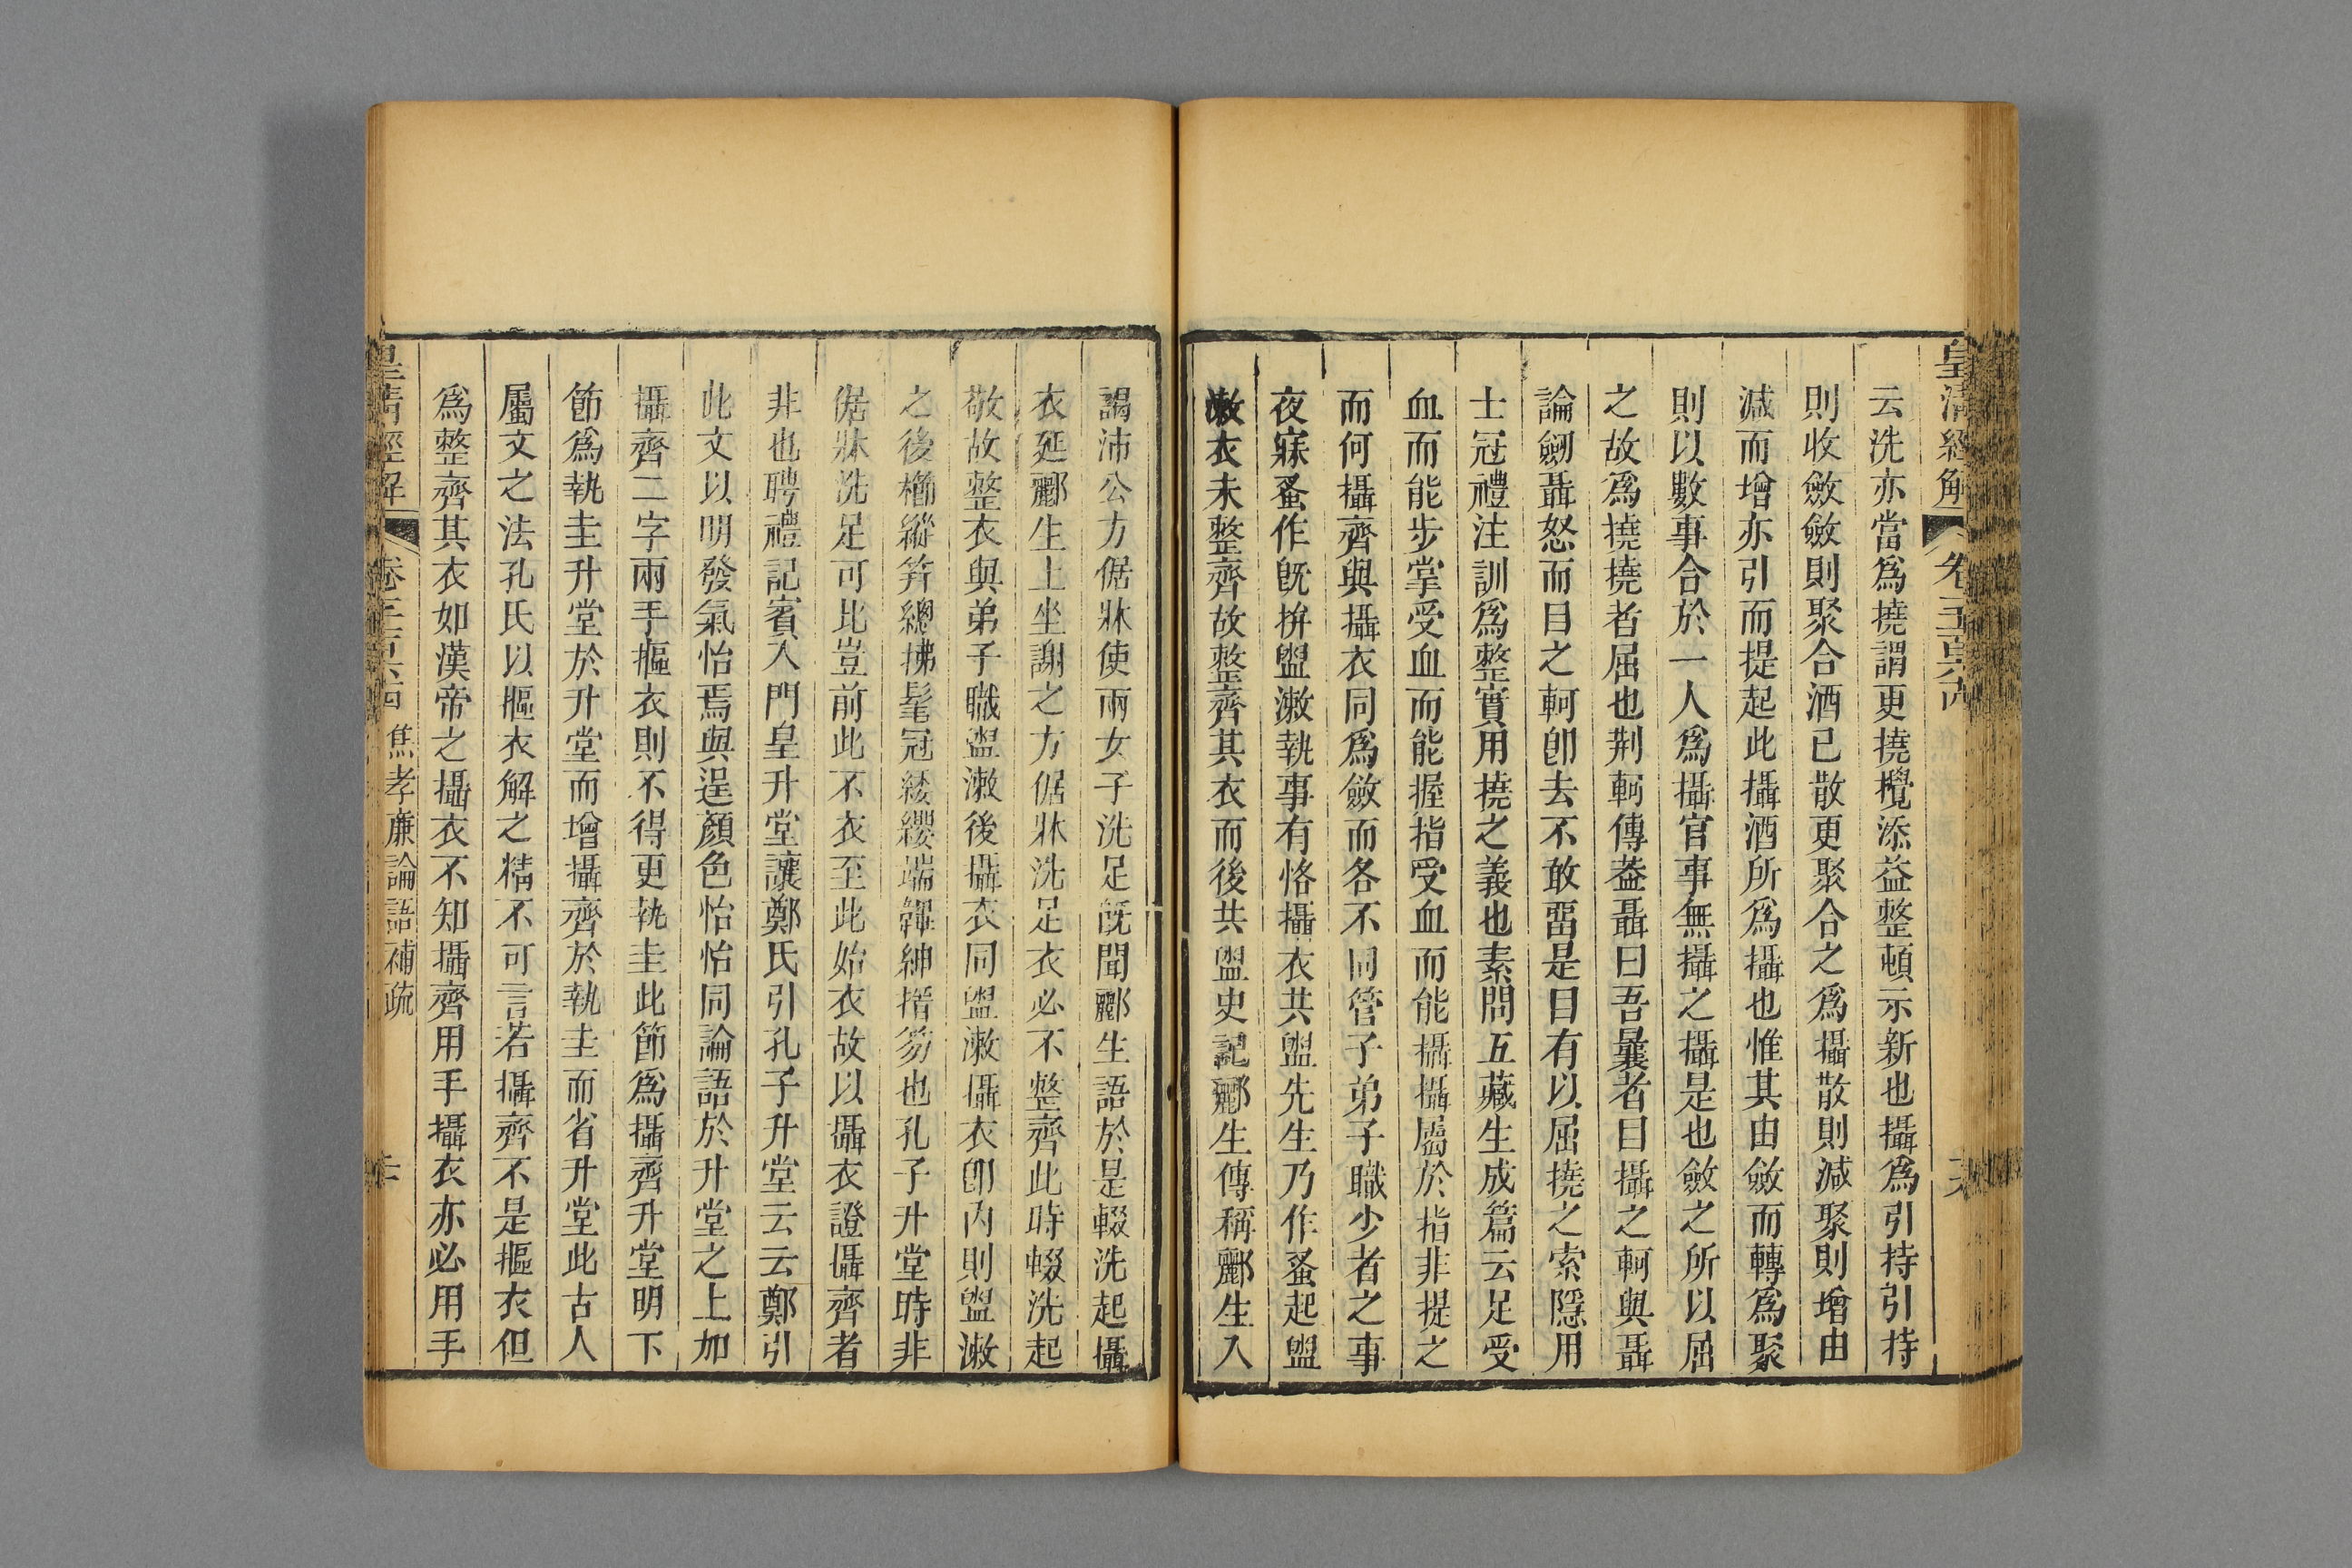 皇清經解 卷
云洗亦當爲撓謂更撓攪添益整頓示新也攝爲引持引持
則收斂斂則聚合酒已散更聚合之爲攝散則減聚則增由
減而增亦引而提起此攝酒所爲攝也惟其由斂而轉爲聚
則以數事合於一人爲攝官事無攝之攝是也斂之所以屈
之故爲撓撓者屈也荆軻傳葢聶曰吾曩者目攝之軻與聶
論劒聶怒而目之軻卽去不敢畱是目有以屈撓之索隱用
士冠禮注訓爲整實用撓之義也素問五藏生成篇云足受
血而能步掌受血而能握指受血而能攝攝屬於指非提之
而何攝齊與攝衣同爲斂而各不同管子弟子職少者之事
夜寐蚤作旣拚盥漱執事有恪攝衣共盥先生乃作蚤起盥
漱衣未整齊故整齊其衣而後共盥史記酈生傳稱酈生入
謁沛公方倨牀使兩女子洗足旣聞酈生語於是輟洗起攝
衣延酈生上坐謝之方倨牀洗足衣必不整齊此時輟洗起
敬故整衣與弟子職盥漱後攝衣同盥漱攝衣卽內則盥漱
之後櫛縰筓總拂髦冠緌纓端韠紳搢笏也孔子升堂時非
倨牀洗足可比豈前此不衣至此始衣故以攝衣證攝齊者
非也聘禮記賓入門皇升堂讓鄭氏引孔子升堂云云鄭引
此文以明發氣怡焉與逞顏色怡怡同論語於升堂之上加
攝齊二字兩手摳衣則不得更執圭此節爲攝齊升堂明下
節爲執圭升堂於升堂而增攝齊於執圭而省升堂此古人
屬文之法孔氏以摳衣解之精不可言若攝齊不是摳衣但
爲整齊其衣如漢帝之攝衣不知攝齊用手攝衣亦必用手
皇清經解 卷 焦孝廉論語補疏